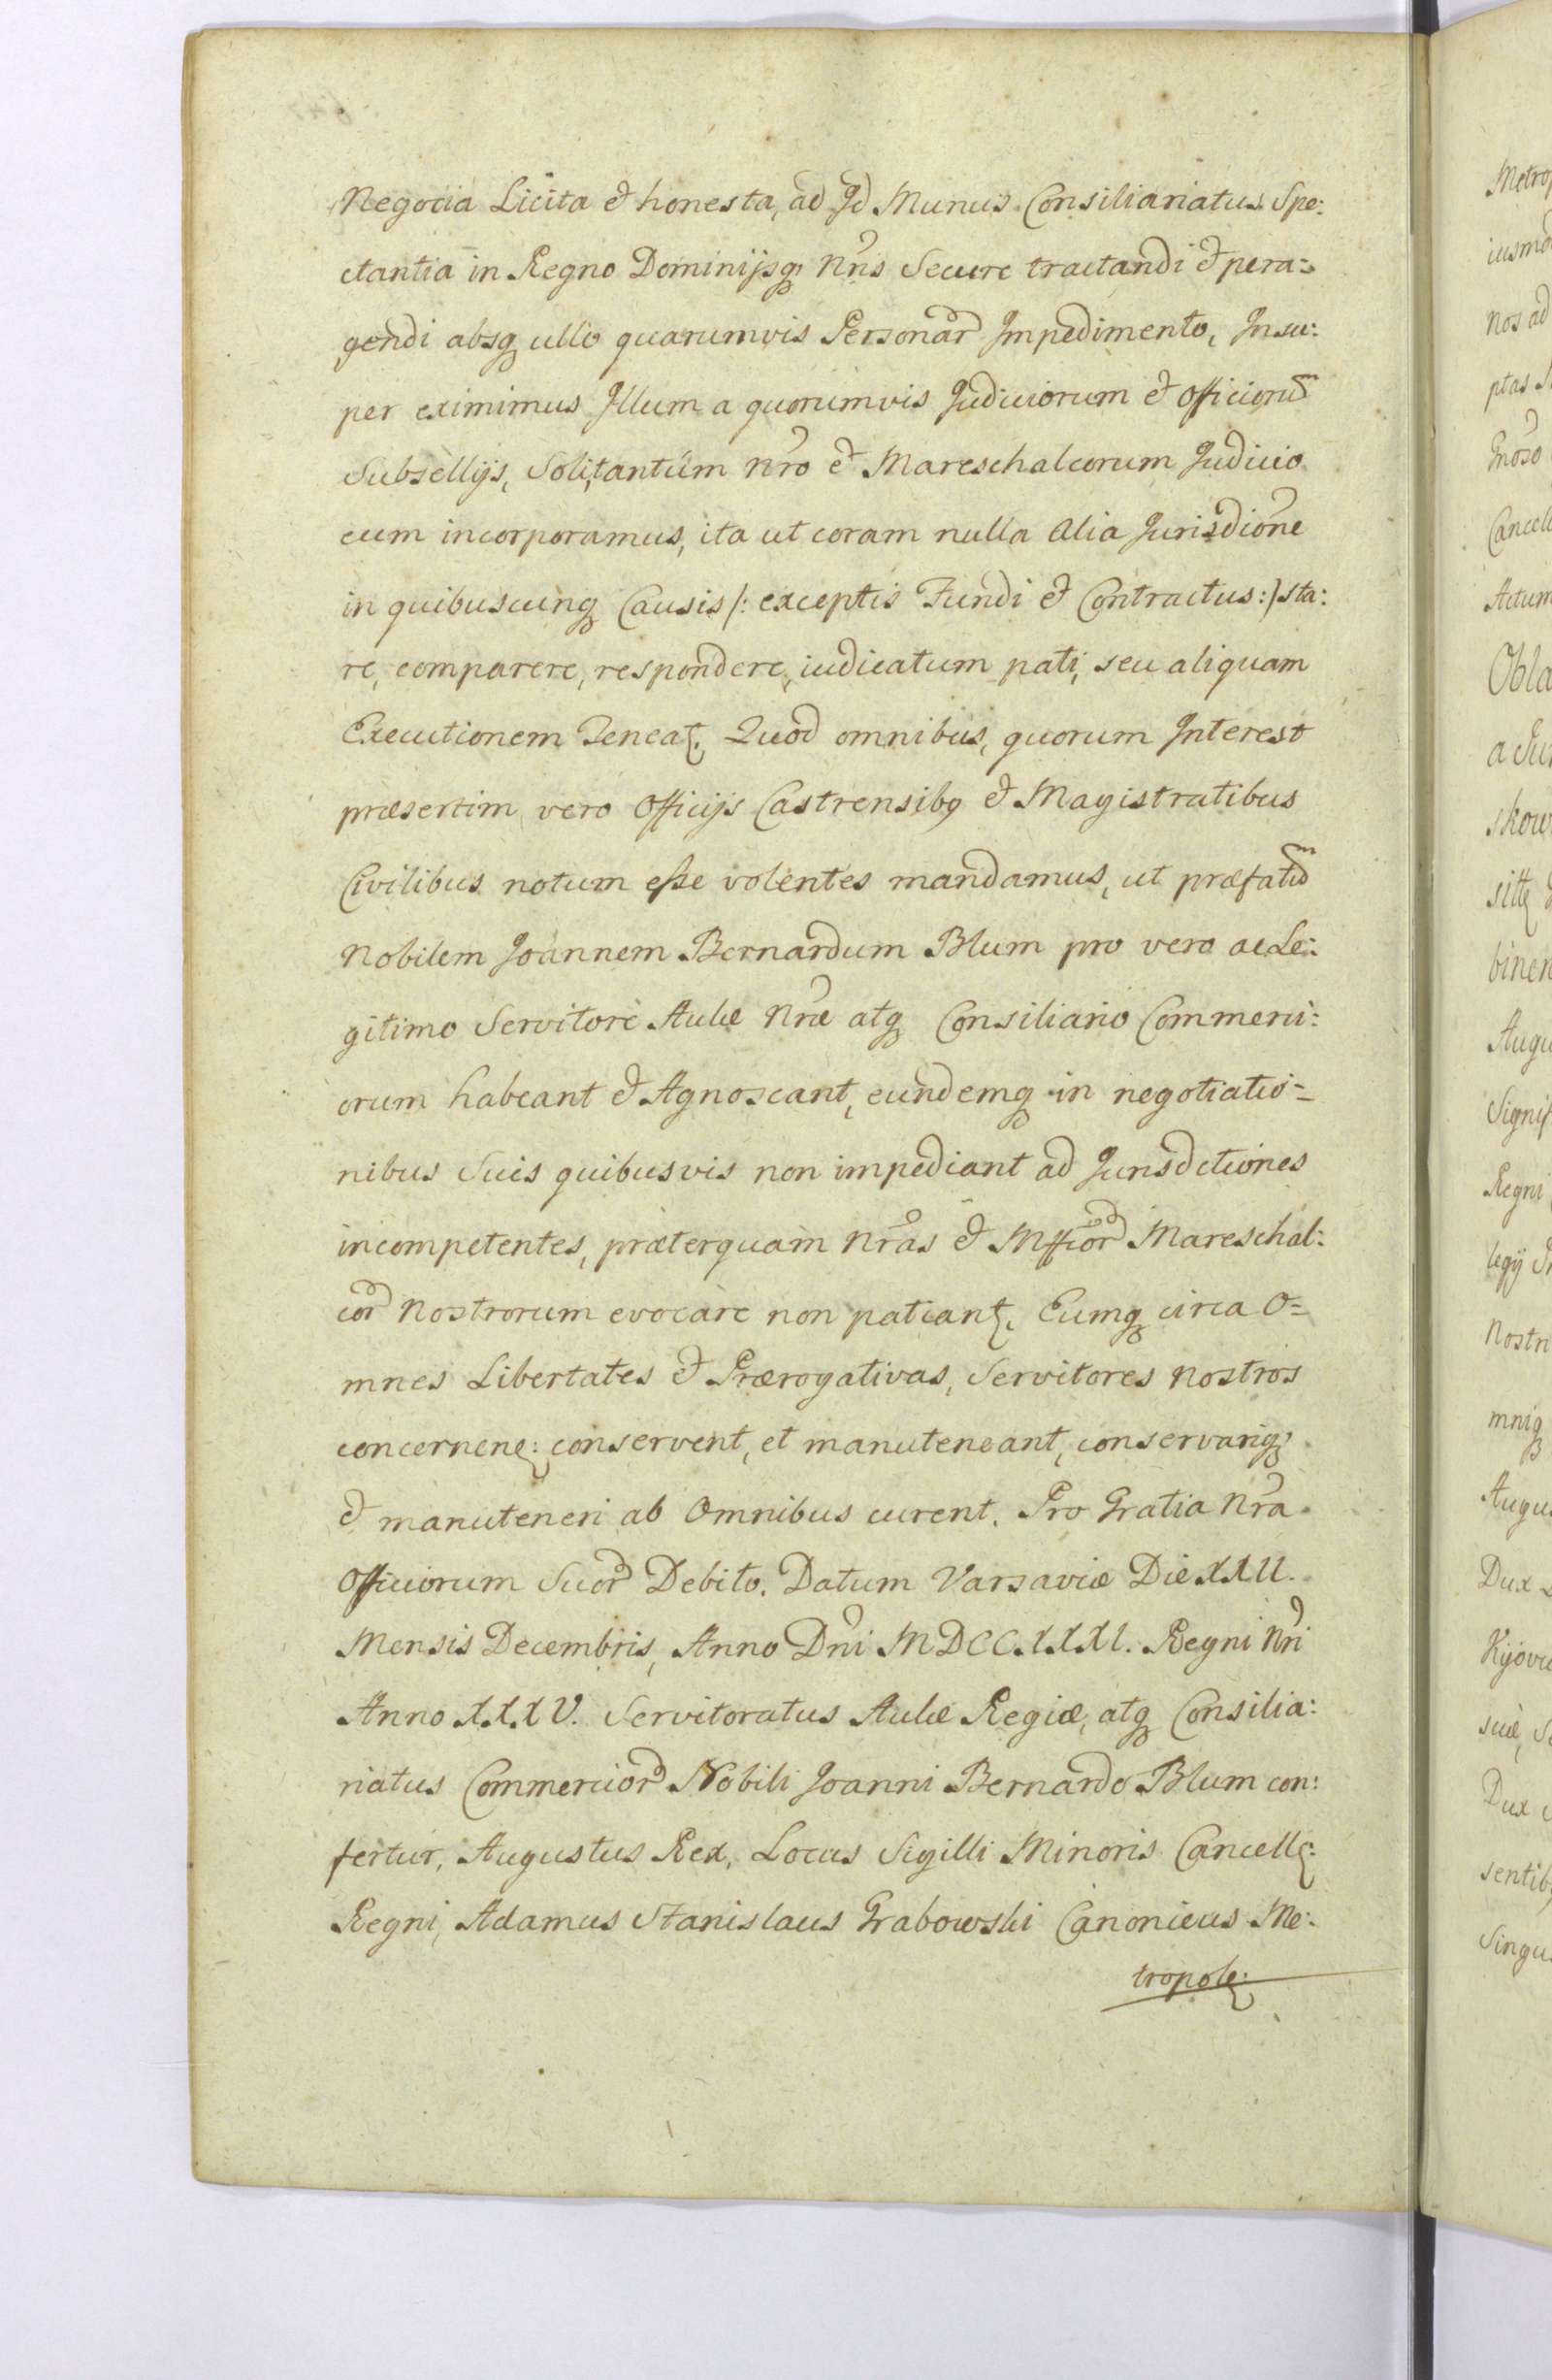 Negocia Licita et honesta, ad Id Munus Consiliariatus Spe:
ctantia in Regno Dominijsq; Nris Secure tractandi et pera:
gendi absq; ullo quarumvis Personar Impedimento, Insu:
per eximimus Illum a quorumvis Judiciorum et Officioru
Subsellijs, Soli, tantum Nro et Mareschalcorum Judicio
eum incorporamus, ita ut coram nulla Alia Jurisdione
in quibuscunq; Causis /: exceptis Fundi et Contractus :/ sta:
re, comparere, respondere, iudicatum pati, seu aliquam
Executionem Teneat. Quod omnibus, quorum Interest
præsertim vero Officijs Castrensibq et Magistratibus
Civilibus notum esse volentes mandamus, ut præfatu
Nobilem Joannem Bernardum Blum pro vero ac Le:
gitimo Servitore Aulæ Nræ atq; Consiliario Commerci:
orum habeant et Agnoscant, eundemq; in negotiatio=
nibus Suis quibusvis non impediant ad Jurisdctiones
incompetentes, præterquam Nras et Mffcior Mareschal:
cor Nostrorum evocare non patiant. Eumq; circa O=
mnes Libertates et Prærogativas, Servitores Nostros
concernen: conservent, et manuteneant, conservariq;
et manuteneri ab Omnibus curent. Pro Gratia Nra
Officiorum Suor Debito. Datum Varsaviæ Die XXII.
Mensis Decembris, Anno Dni MDCCXXXI. Regni Nri
Anno XXXV. Servitoratus Aulæ Regiæ, atq; Consilia:
riatus Commercior Nobili Joanni Bernardo Blum con:
fertur, Augustus Rex, Locus Sigilli Minoris Cancell:
Regni, Adamus Stanislaus Grabowski Canonicus Me:
tropol:
Metrop
iusmod
Nos ad
ptas S
Gnoso
Cancell
Actum
Obla
a Jur
skow
sitt
binen
Augu
Signif
Regni
legij
Nostri
mniq;
Augus
Dux
Kijovi
suæ, S
Dux
sentib
Singu